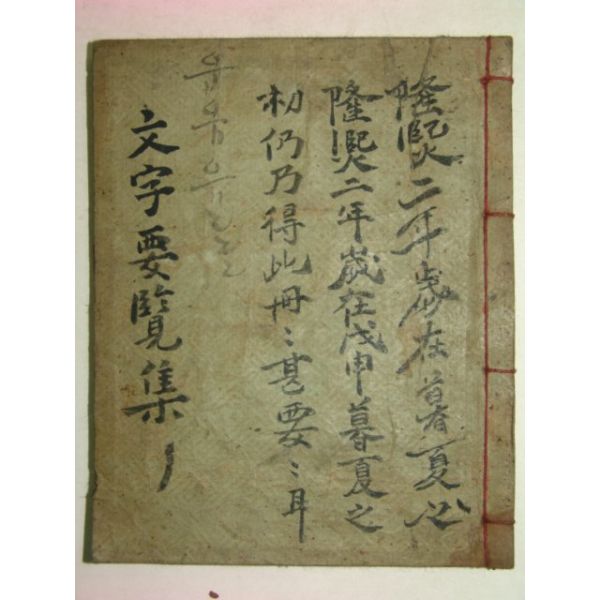 隆熙二年歲在暮夏
隆熙二年歲在戊申暮夏之
初仍乃得此冊〻甚要〻耳
文字要覽集